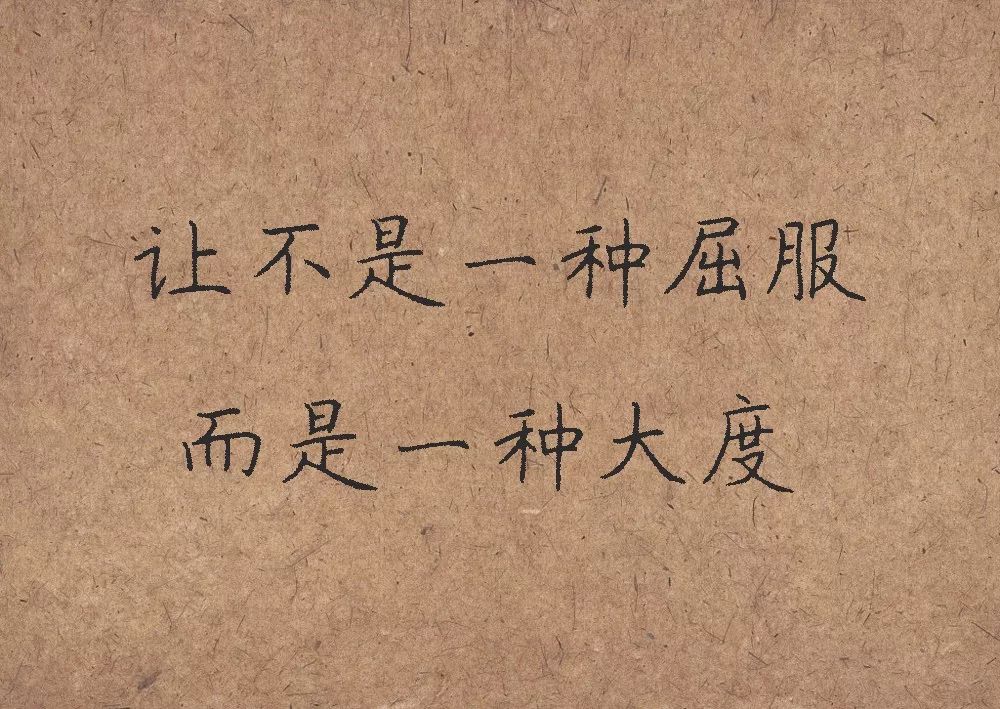 让不是一种屈服
而是一种大度